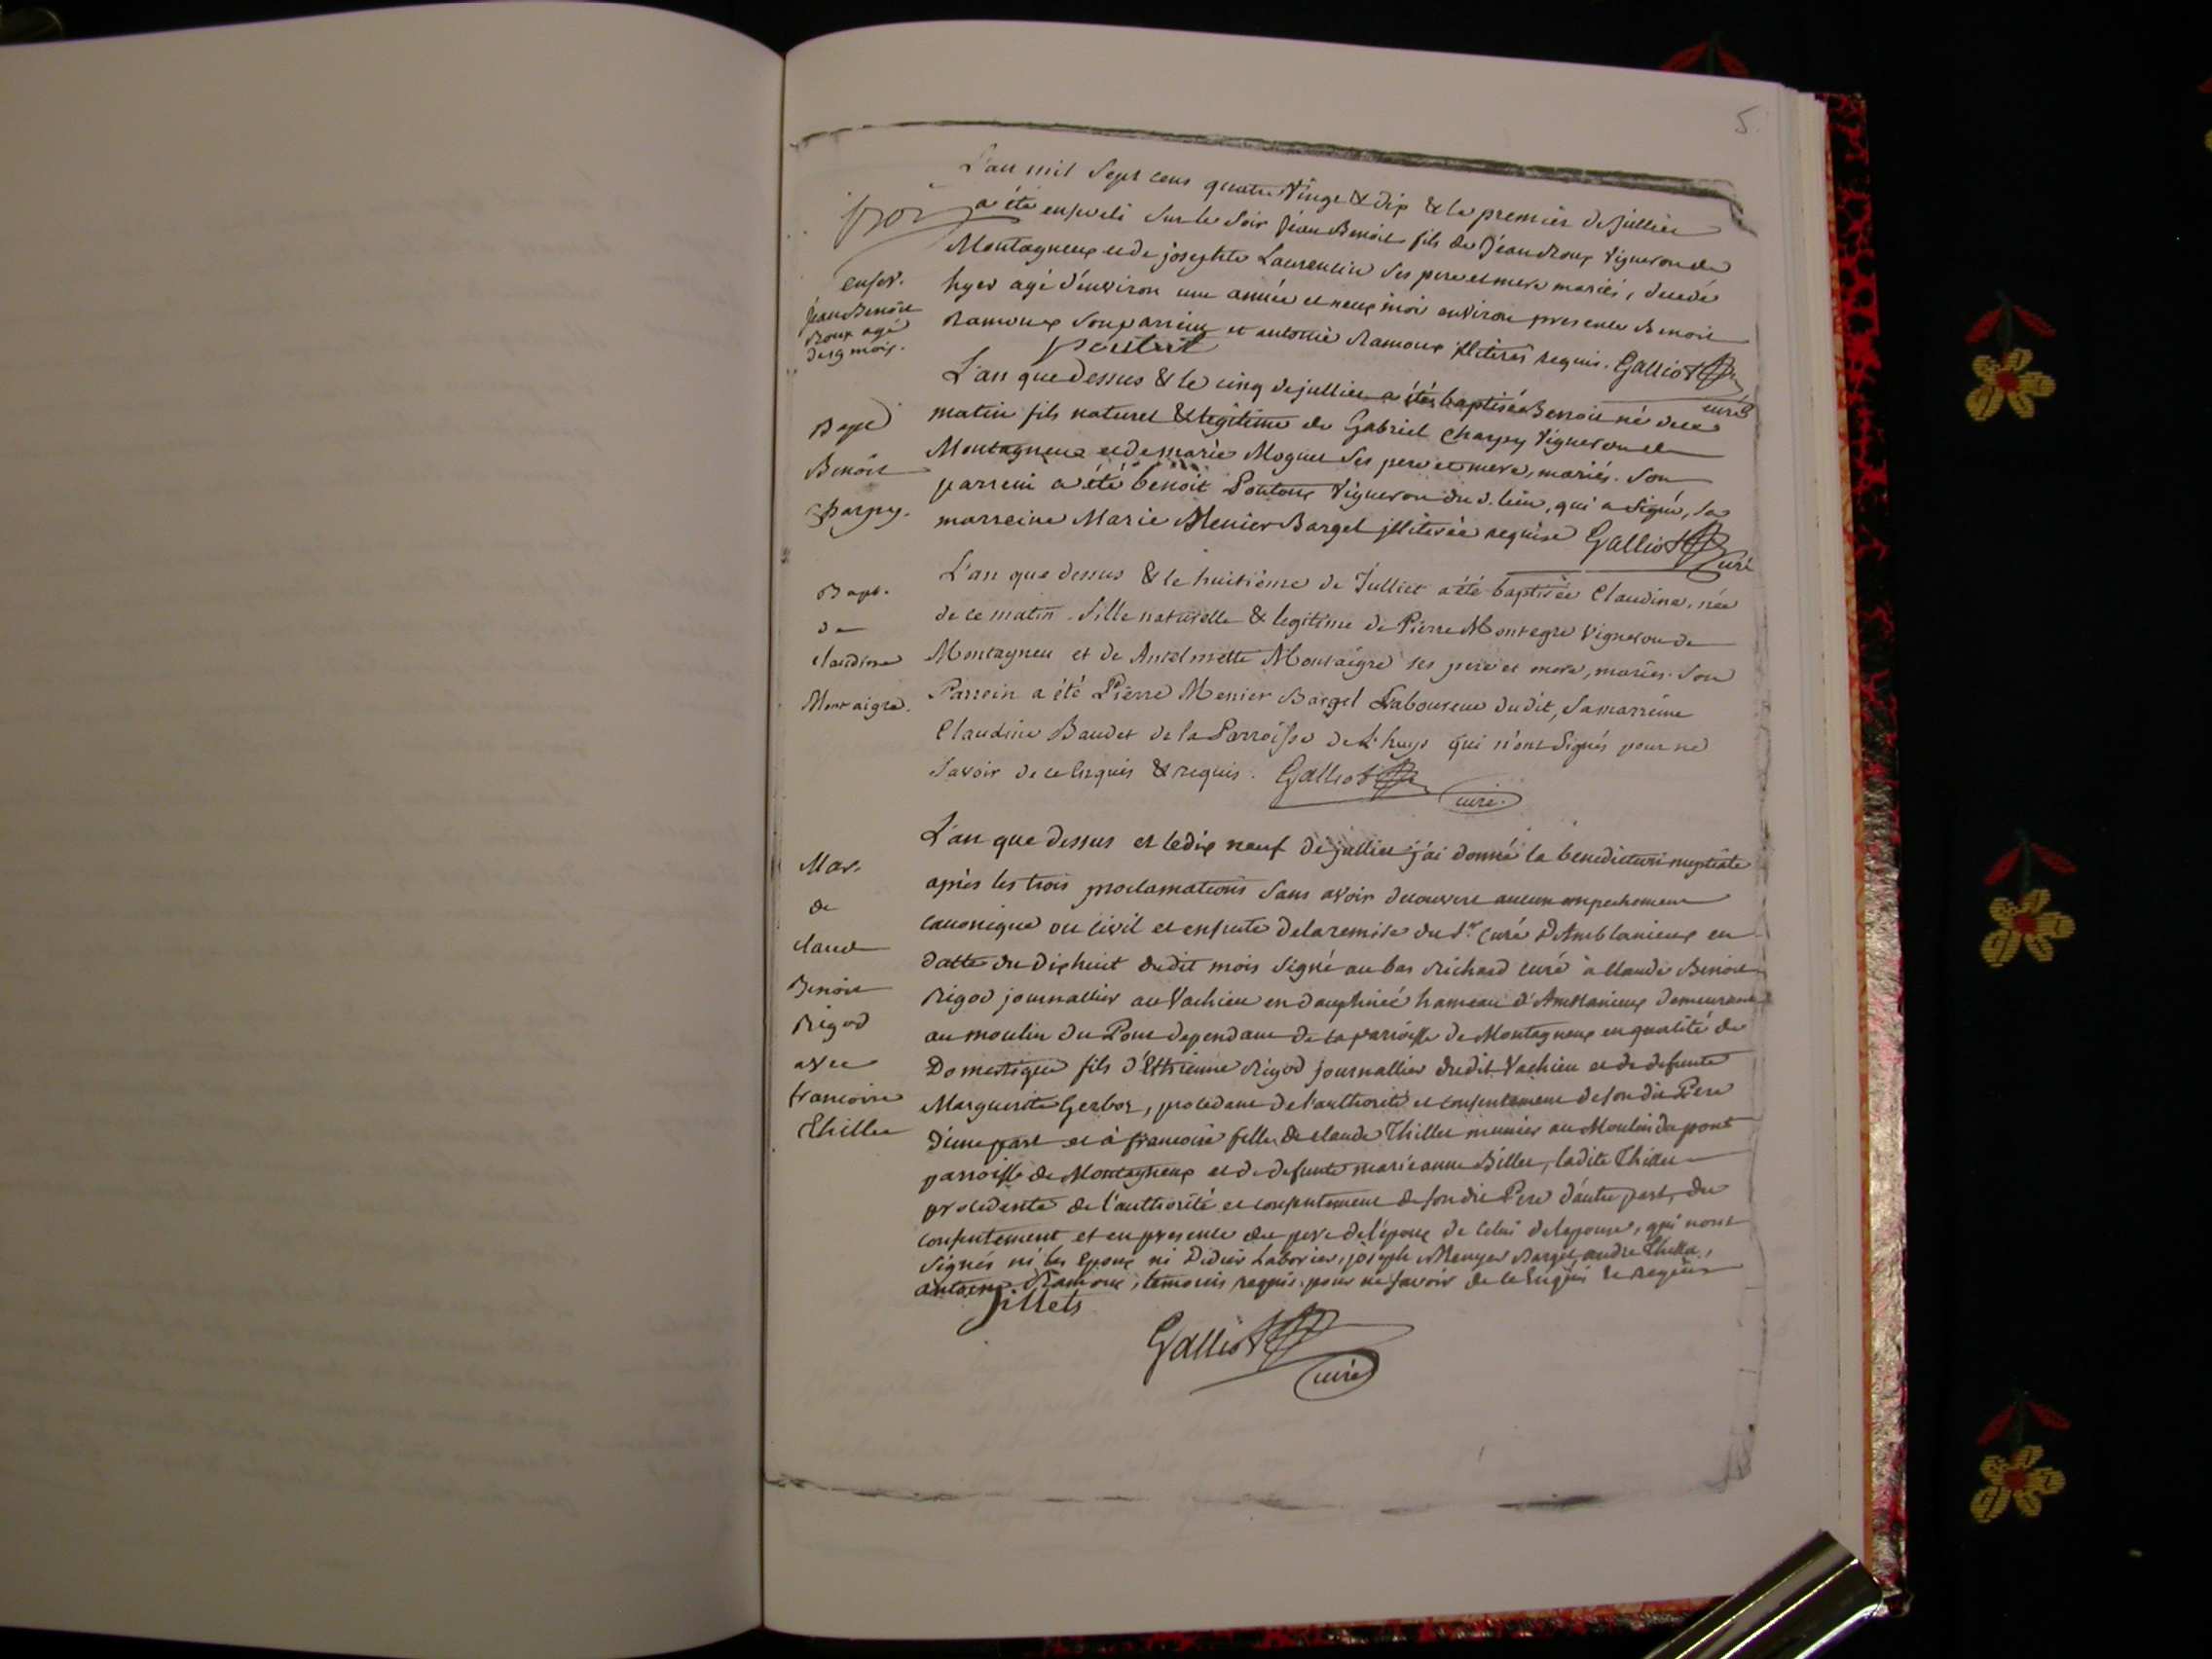 5.
L'an mil sept cens quatre Vingt & dix & le premier de juillier
a été enseveli sur le soir jean Benoit fils de jean Roux Vigneron de
Montagneux et de josephte Laurencin ses pere et mere mariés, decedé
hyer agé d'environ une année et neuf mois environ presents Benoit
Ramoux son parrein et antoine Ramoux illiterés requis. Galliot
curé
1790
ensev.
jean Benoit
Roux agé
de 19 mois.
L'an que dessus & le cinq de juillier a été baptisé Benoit né de ce
matin fils naturel & legitime de Gabriel Charpy Vigneron de
Montagneux et de marie Moguet ses pere et mere, mariés. Son
parrein a été benoit Poutoux Vigneron du d. lieu, qui a signé, la
marreine Marie Menier Bargel illiterée requise Galliot
curé
Bapt
Benoit
Charpy.
L'an que dessus & le huitième de Julliet a été baptisée Claudine, née
de ce matin. fille naturelle & legitime de Pierre Montegre Vigneron de
Montagneu et de Antelmette Montaigre ses pere et mere, mariés. Son
Parrein a été Pierre Menier Bargel Laboureur dudit, sa marreine
Claudine Baudet de la Parroisse de L'huys qui n'ont signés pour ne
savoir de ce enquis & requis. Galliot
curé.
Bapt.
de
claudine
Montaigre.
L'an que dessus et le dix neuf de juillier j'ai donné la benediction nuptiale
après les trois proclamations sans avoir decouvert aucun empechement
canonique ou civil et ensuite de la remise du Sr. Curé d'Amblanieux en
datte du dix huit dudit mois signé au bas Richard curé à Claude Benoit
Rigod journallier au Vachieu en dauphinée hameau d'Amblanieux demeurant
au moulin du Pont dependant de la parroisse de Montagneux en qualité de
Domestique fils d'Ettienne Rigod journallier dudit Vachieu et de defunte
Marguerite Gerboz, procedant de l'authorité et consentement de son dit Pere
d'une part et à francoise fille de claude Thiller munier au Moulin du pont
parroisse de Montagneux et de defunte marie anne Billet, ladite Thiller
procedante de l'authorité et consentement de son dit Pere d'autre part, du
consentement et en presence du pere de l'époux de celui de l'epouse, qui n'ont
signés ni les Epoux ni Didier Laborier, joseph Menyer Bargel, andre Thiller,
antoine Ramoux, temoins requis, pour ne savoir de ce enquis & requis
Galliot
curé
Mar.
de
claud
Benoit
Rigod
avec
francoise
Thiller